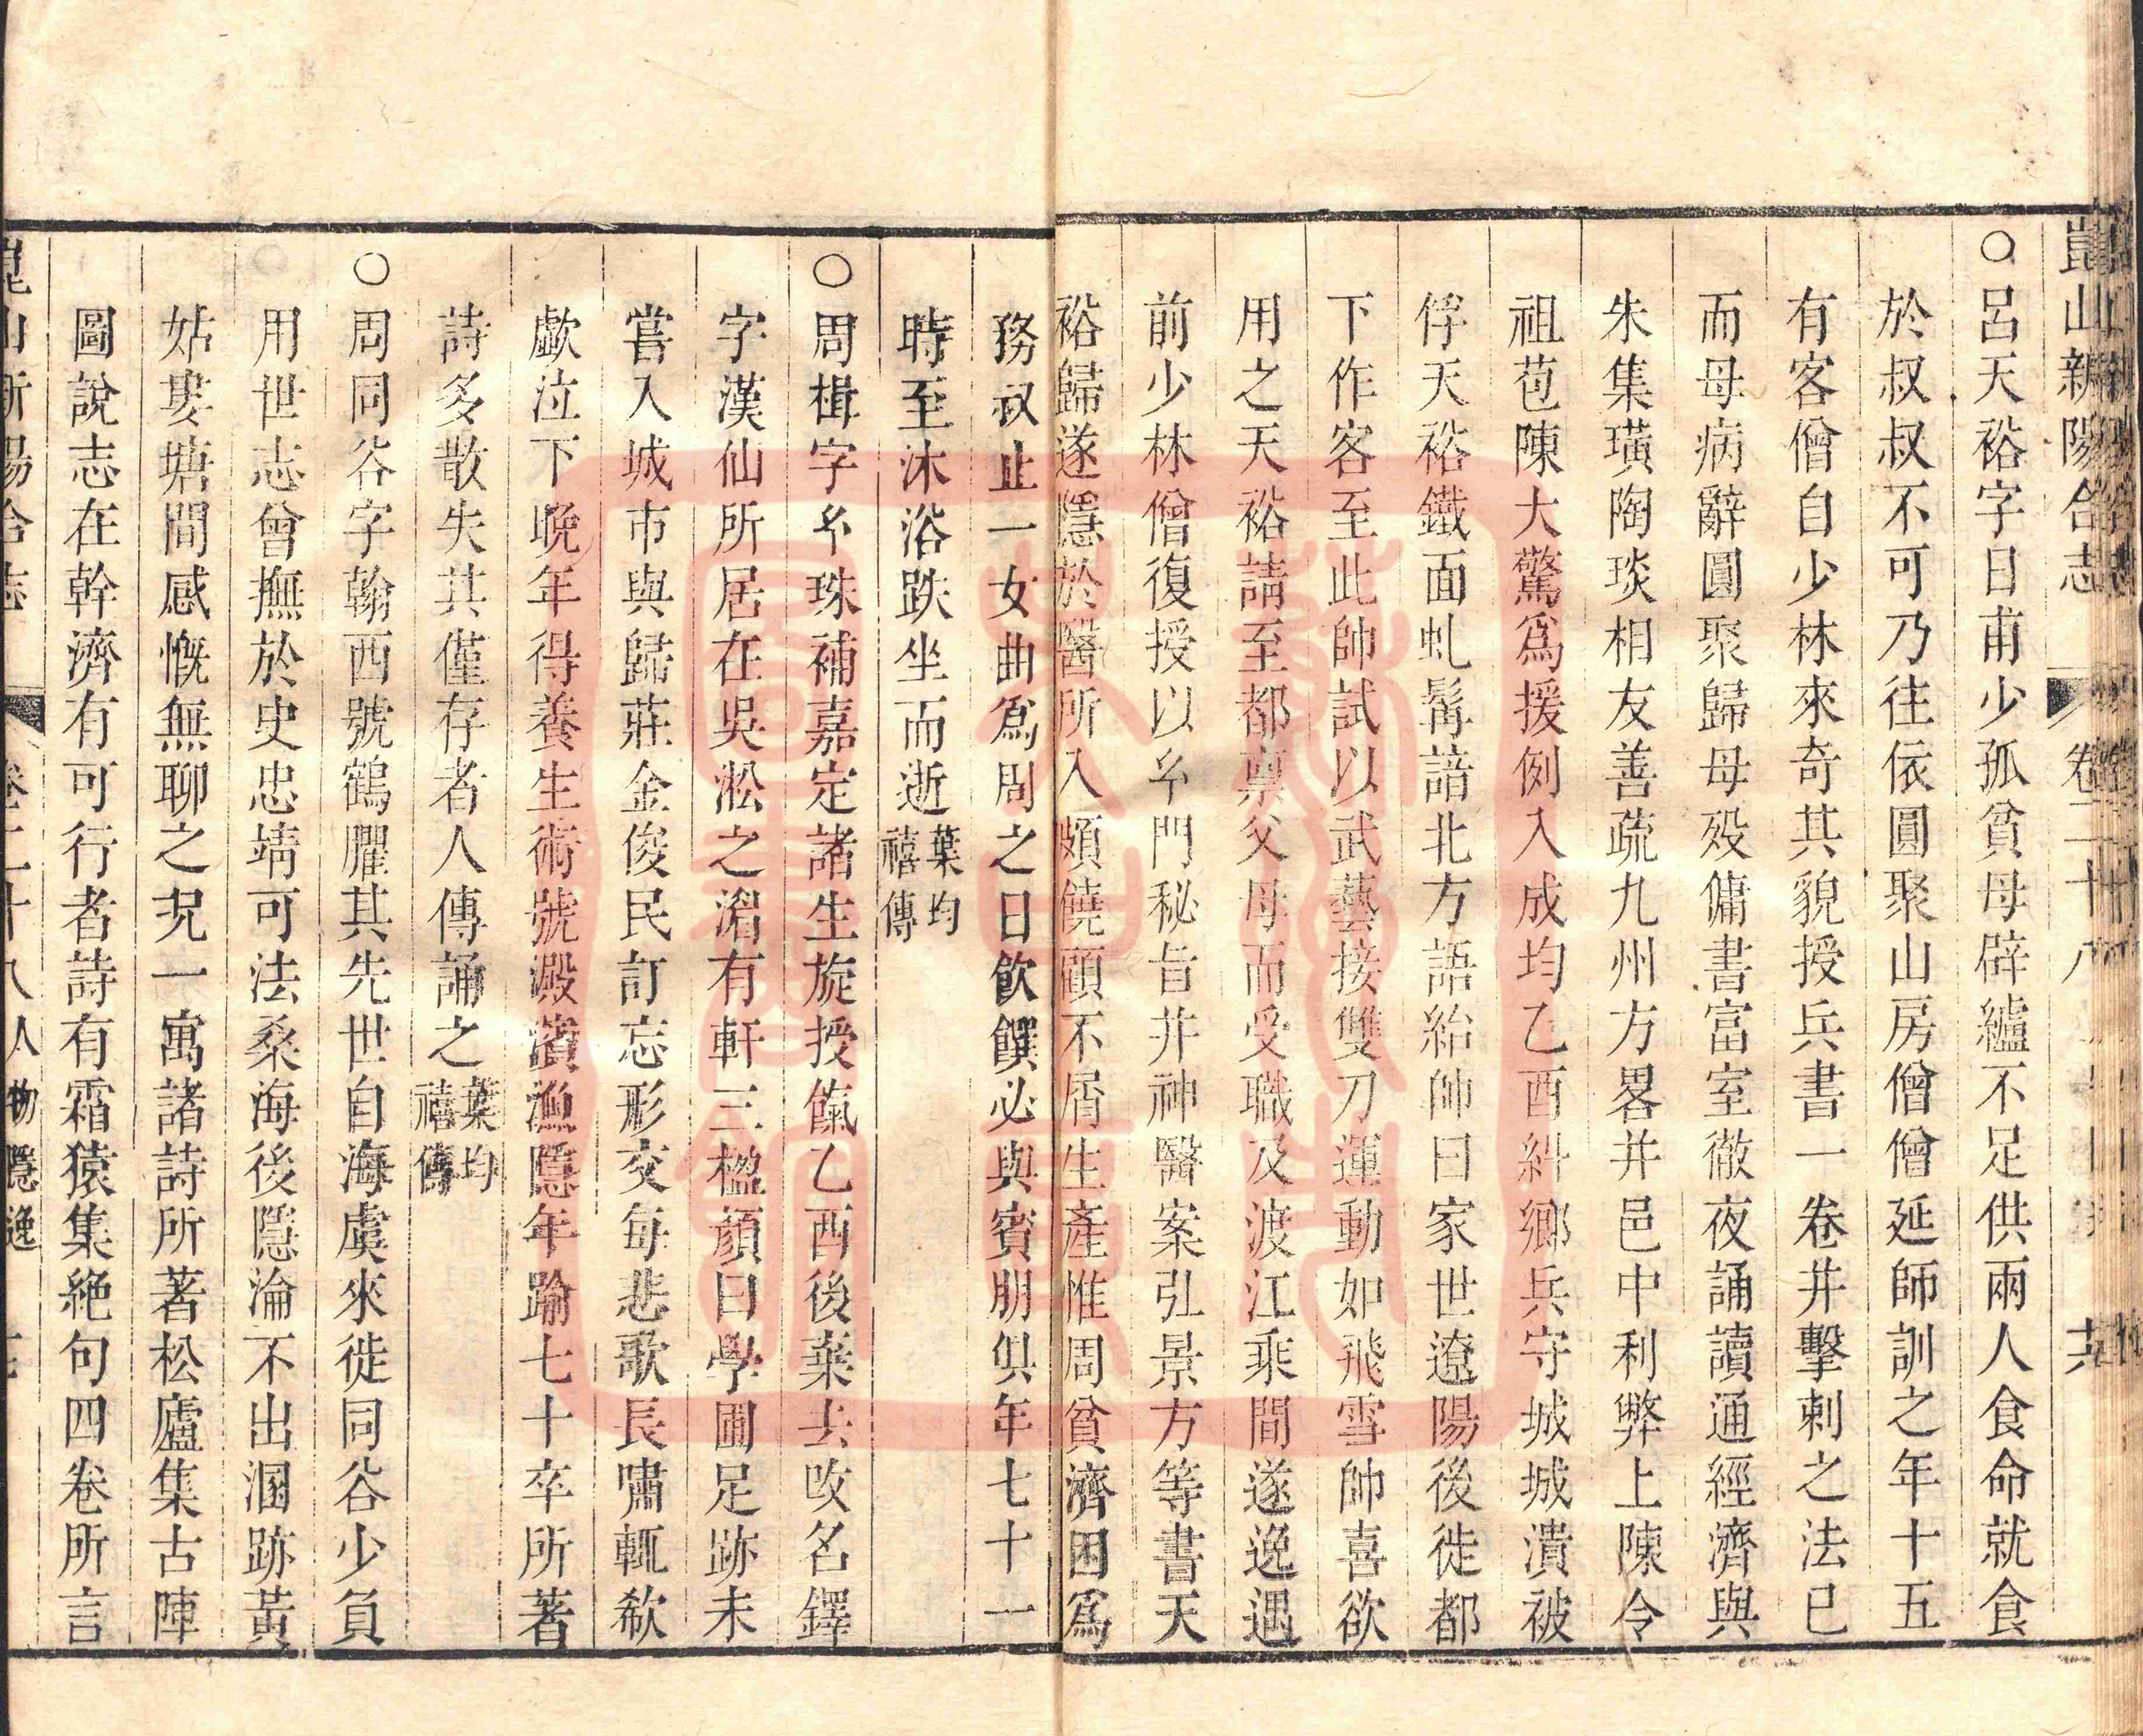 崑山新陽合志 卷二十八 十六
○呂天裕字日甫少孤貧母辟纑不足供兩人食命就食
於叔叔不可乃往依圓聚山房僧僧延師訓之年十五
有客僧自少林來奇其貌授兵書一卷并擊刺之法已
而母病辭圓聚歸母歿傭書富室徹夜誦讀通經濟與
朱集璜陶琰相友善疏九州方畧并邑中利弊上陳令
祖苞陳大驚爲援例入成均乙酉糾鄉兵守城城潰被
俘天裕鐵面虬髯諳北方語紿帥曰家世遼陽後徙都
下作客至此帥試以武藝接雙刀運動如飛雪帥喜欲
用之天裕請至都稟父母而受職及渡江乘間遂逸遇
前少林僧復授以幺門秘旨并神醫案引景方等書天
裕歸遂隱於醫所入頗饒顧不屑生產惟周貧濟困爲
務叔止一女曲爲周之日飲饌必與賓朋俱年七十一
時至沐浴趺坐而逝葉均禧傳
○周楫字幺珠補嘉定諸生旋授餼乙酉後棄去改名鐸
字漢仙所居在吳淞之湄有軒三楹顏曰學圃足跡未
嘗入城市與歸莊金俊民訂忘形交每悲歌長嘯輒欷
歔泣下晚年得養生術號澱濱漁隱年踰七十卒所著
詩多散失其僅存者人傳誦之葉均禧傳
○周同谷字翰西號鶴臞其先世自海虞來徙同谷少負
用世志曾撫於史忠靖可法桑海後隱淪不出溷跡黃
姑婁塘間感慨無聊之況一寓諸詩所著松廬集古陣
圖說志在幹濟有可行者詩有霜猿集絕句四卷所言
崑山新陽合志 卷二十八 人物隱逸